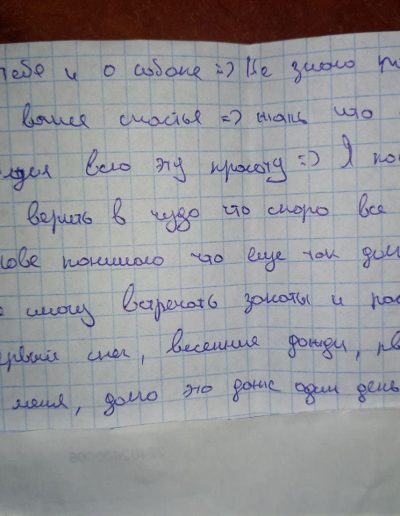 тебе и о собаке =) Не знаю
выше счастья =) жаль что
всю эту красоту =) Я
верить в чудо что скоро все
понимаю что еще так
смогу встречать закаты и
снег, весенние дожди,
меня, долго это даже один день